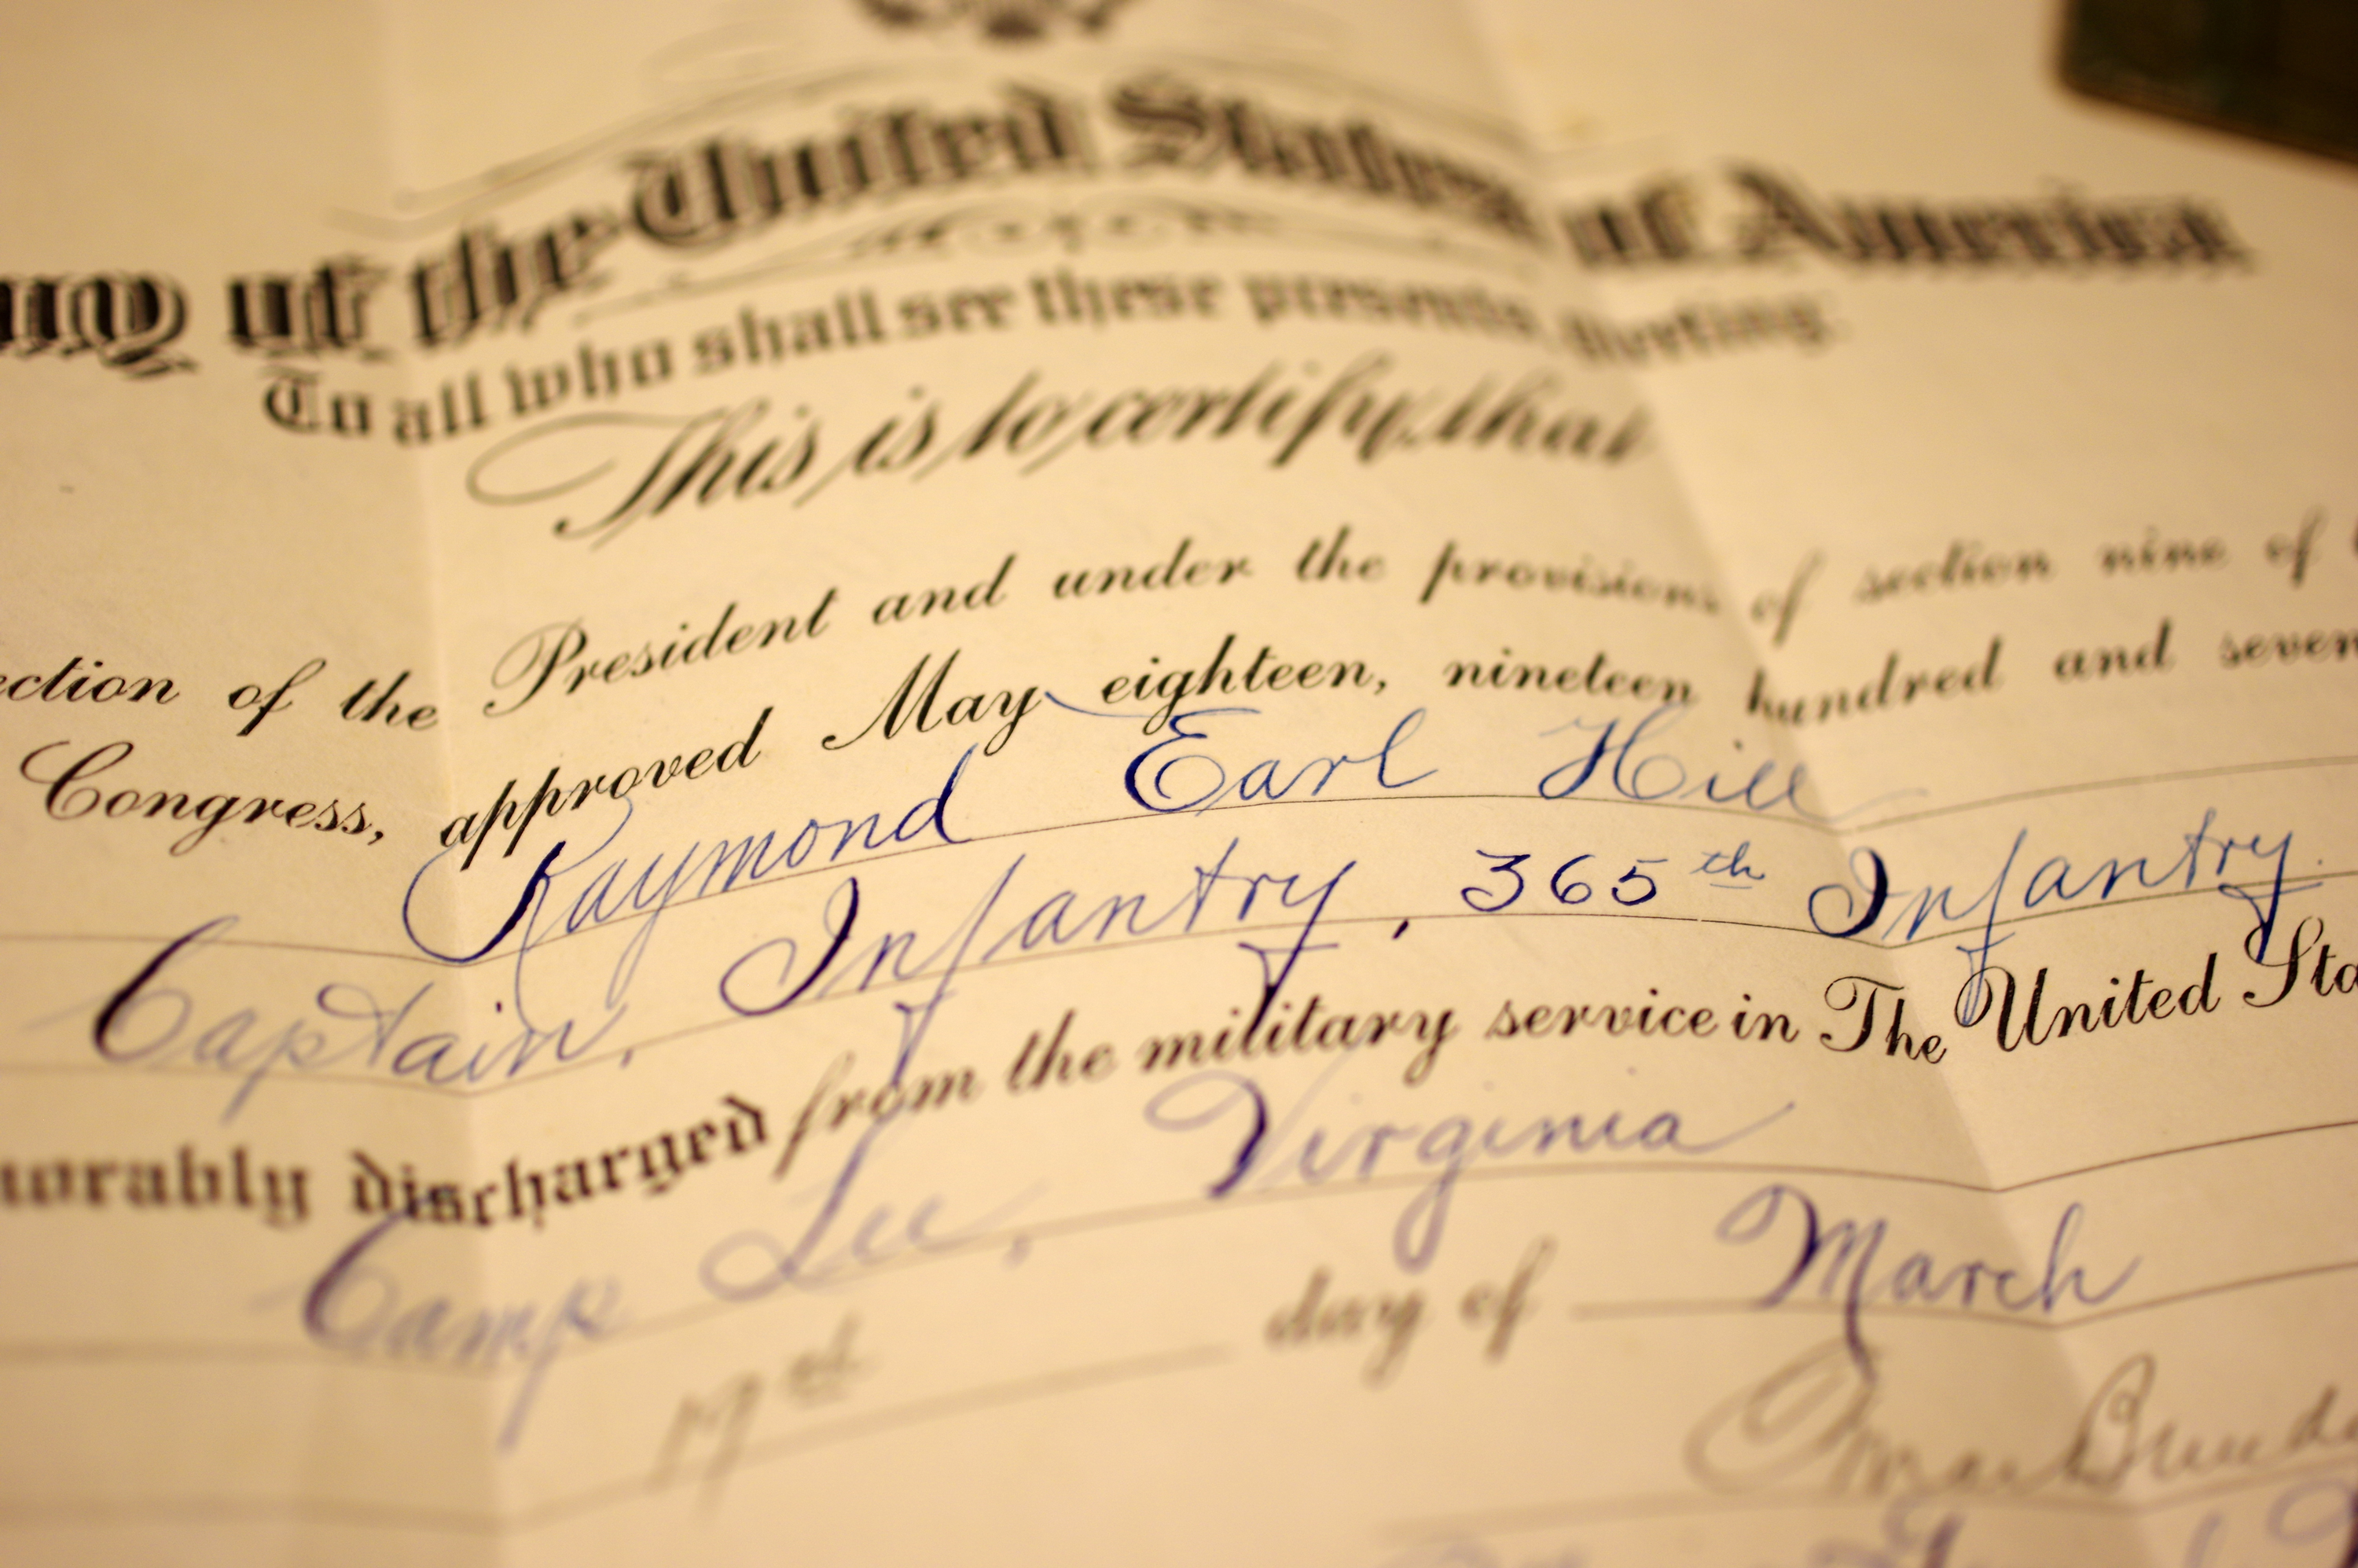 my of the United States of America
To all who shall see these presents, Greeting:
This is to certify, that
ection of the President and under the provisions of section nine of
Congress, approved May eighteen, nineteen hundred and seven
Raymond Earl Hill
Captain, Infantry, 365th Infantry.
orably discharged from the military service in The United Sta
Camp Lee, Virginia
day of March